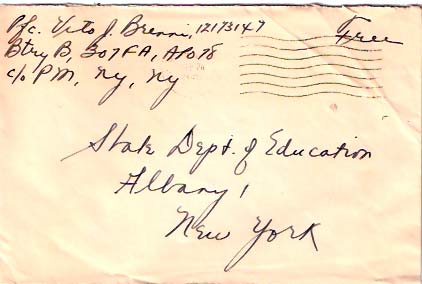 Pfc. Vito J. Brenni, 12173147
Free
Btry B, 307 FA, APO 78
c/o PM, Ny, Ny
State Dept. of Education
Albany 1
New York